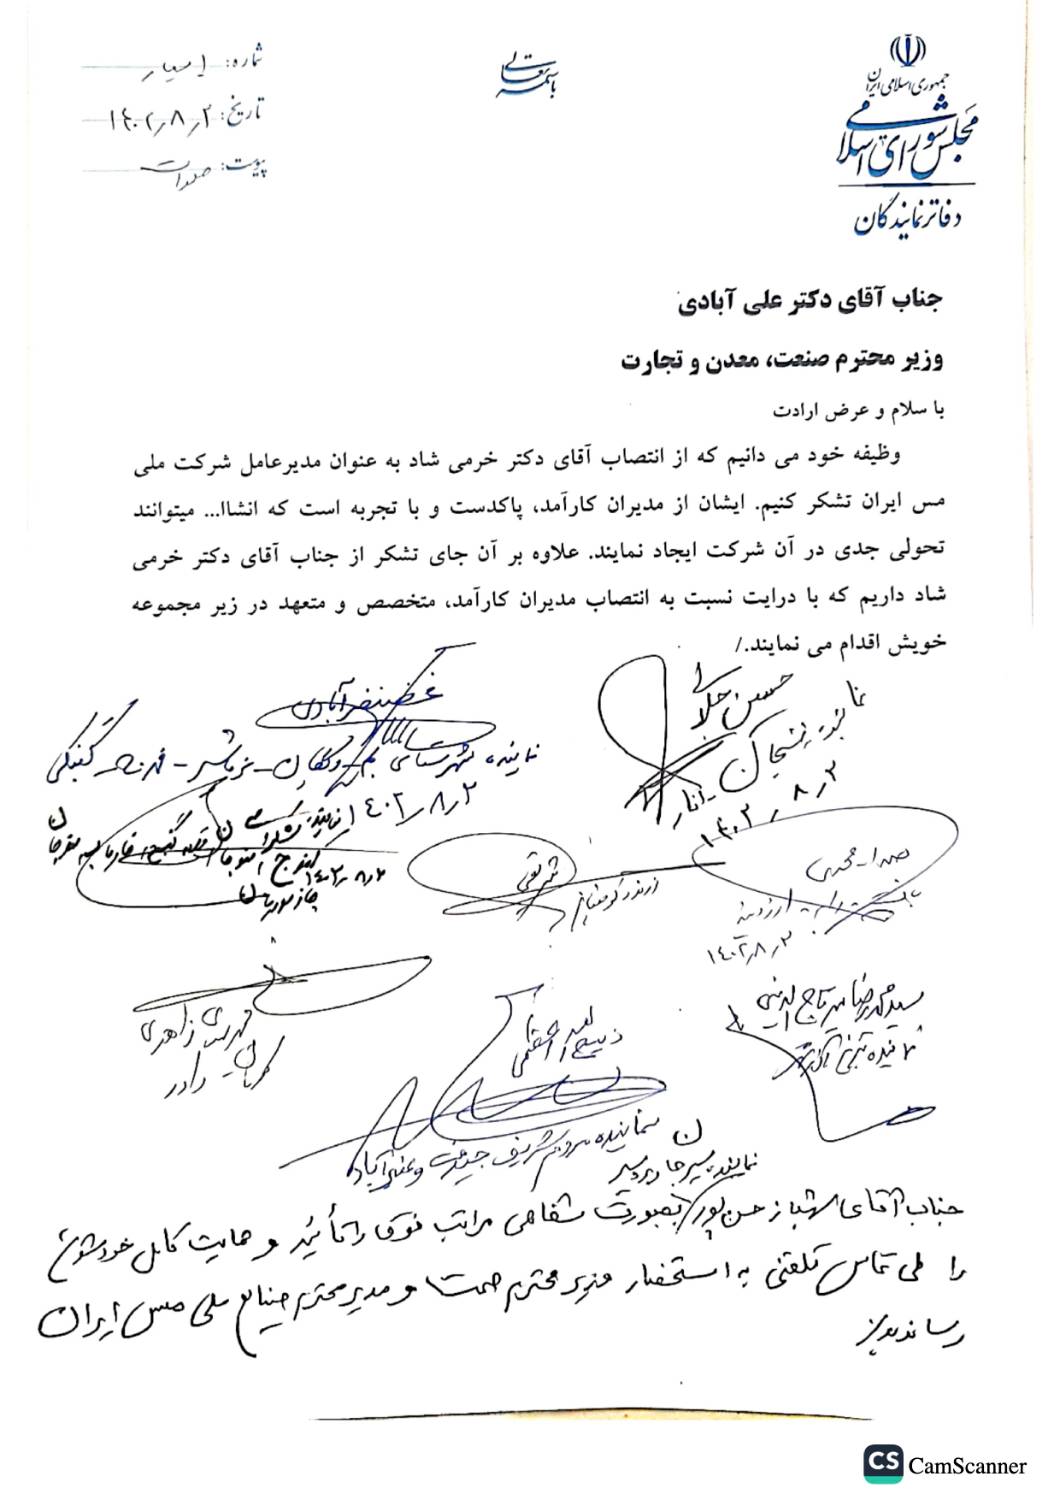 جمهوری اسلامی ایران
مجلس شورای اسلامی
دفاتر نمایندگان
باسمه تعالی
شماره:
تاریخ: ۱۴۰۲٫۸٫۲
پیوست:
جناب آقای دکتر علی آبادی
وزیر محترم صنعت، معدن و تجارت
با سلام و عرض ارادت
وظیفه خود می دانیم که از انتصاب آقای دکتر خرمی شاد به عنوان مدیرعامل شرکت ملی
مس ایران تشکر کنیم. ایشان از مدیران کارآمد، پاکدست و با تجربه است که انشاا... میتوانند
تحولی جدی در آن شرکت ایجاد نمایند. علاوه بر آن جای تشکر از جناب آقای دکتر خرمی
شاد داریم که با درایت نسبت به انتصاب مدیران کارآمد، متخصص و متعهد در زیر مجموعه
خویش اقدام می نمایند./
حسین جلالی
نماینده رفسنجان انار
۱۴۰۲٫۸٫۲
غضنفرآبادی
نماینده شهرستانهای بم
۱۴۰۲٫۸٫۲
۱۴۰۲٫۸٫۲
محمدی
بافت رابر ارزوئیه
۱۴۰۲٫۸٫۲
زرند کوهبنان
مهدی زاهدی
کرمان راور
ذبیح اله اعظمی
نماینده مردم شریف جیرفت و عنبرآباد
سید محمدرضا میرتاج الدینی
نماینده تبریز
نماینده سیرجان و بردسیر
جناب آقای شهباز حسن پور بصورت شفاهی مراتب فوق را تأئید و حمایت کامل خودشون
را طی تماس تلفنی به استحضار وزیر محترم صمت و مدیر محترم صنایع ملی مس ایران
رساندند
CS CamScanner